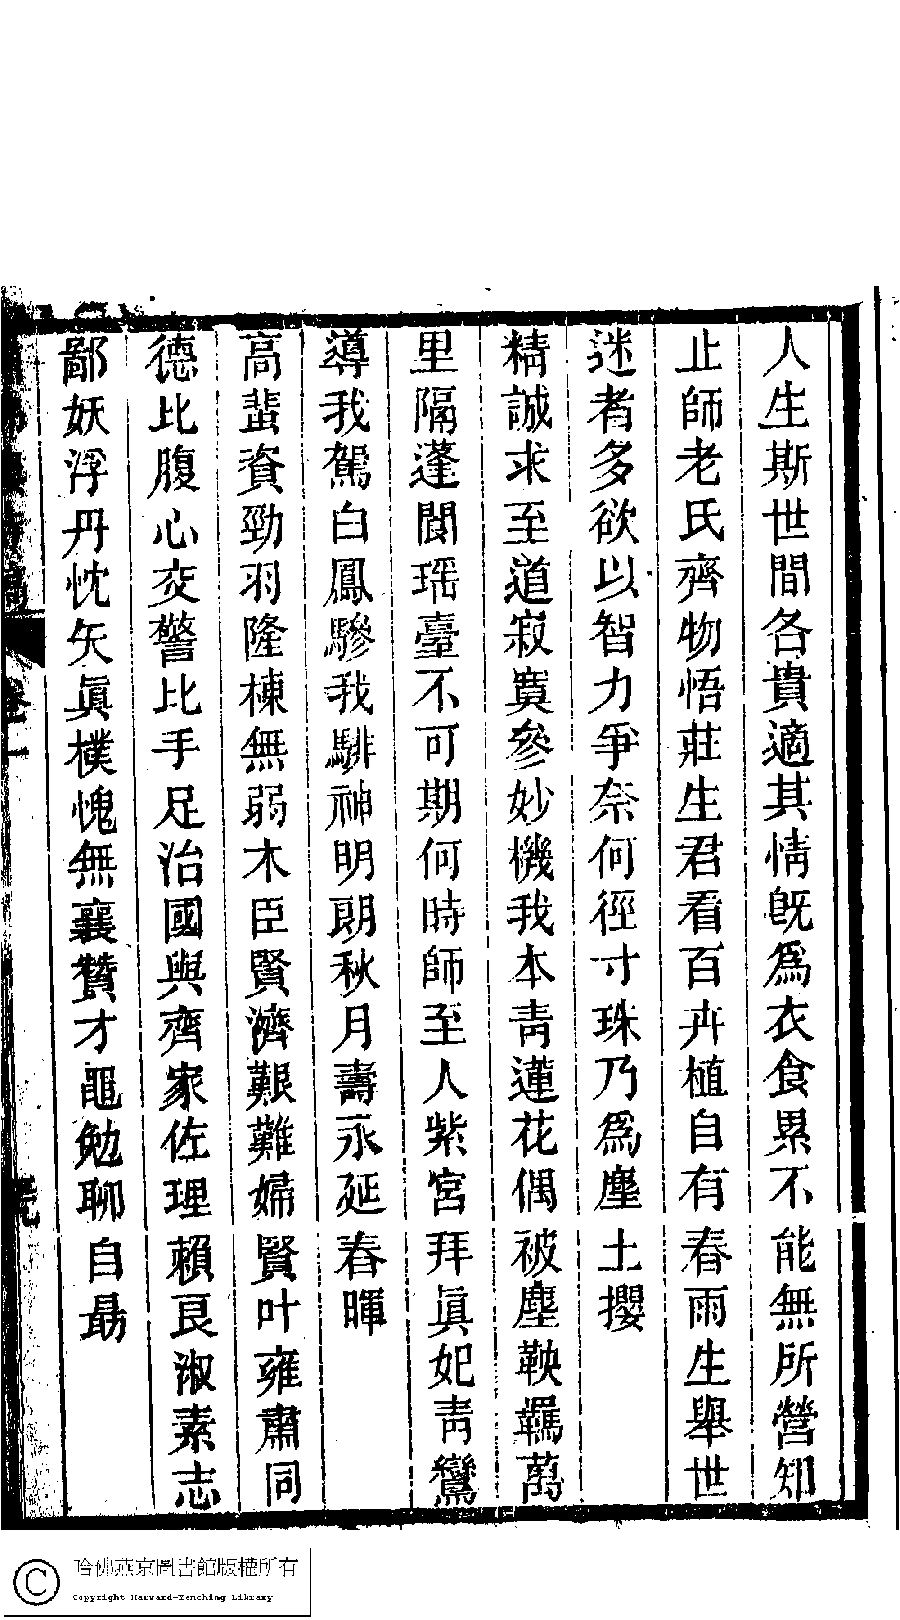 人生斯世間各貴適其情旣爲衣食累不能無所營知
止師老氏齊物悟莊生君看百卉植自有春雨生舉世
迷者多欲以智力爭奈何徑寸珠乃爲塵土攖
精誠求至道寂寞參妙機我本靑蓮花偶被塵鞅羈萬
里隔蓬閬瑶臺不可期何時師至人紫宮拜眞妃靑鸞
導我駕白鳳驂我騑神明朗秋月壽永延春暉
高蜚資勁羽隆棟無弱木臣賢濟艱難婦賢叶雍肅同
德比腹心交警比手足治國與齊家佐理賴良淑素志
鄙妖浮丹忱矢眞樸愧無襄贊才黽勉聊自勗
卷一
哈佛燕京圖書館版權所有
Copyright Harvard-Yenching Library